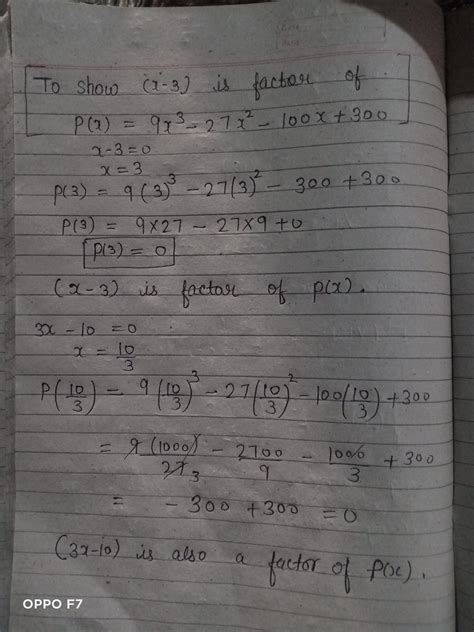 To show (x-3) is factor of
P(x) = 9x³ - 27x² - 100x + 300
x-3=0
x = 3
P(3) = 9(3)³ - 27(3)² - 300 + 300
P(3) = 9×27 - 27×9 + 0
P(3) = 0
(x-3) is factor of p(x).
3x - 10 = 0
x = 10/3
P(10/3) = 9(10/3)³ - 27(10/3)² - 100(10/3) + 300
= 9(1000)/27 3 - 2700/9 - 1000/3 + 300
= - 300 + 300 = 0
(3x-10) is also a factor of P(x).
OPPO F7